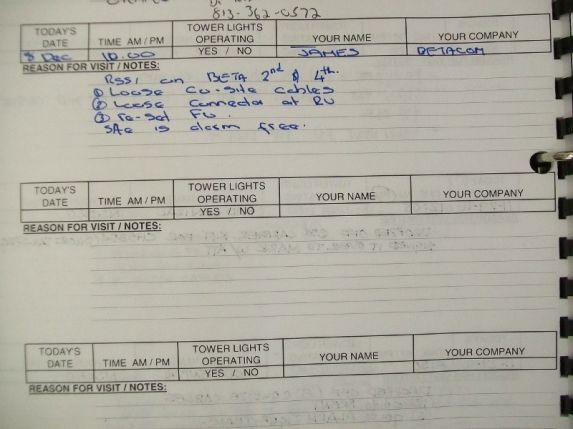 813-362-0572
TODAY'S DATE TIME AM / PM TOWER LIGHTS OPERATING YES / NO YOUR NAME YOUR COMPANY
8 Dec 10.00 JAMES BETACOM
REASON FOR VISIT / NOTES:
RSSI on BETA 2nd & 4th.
① Loose Co-Site cables
② Loose Connector at RU
③ re-Set FU.
Site is alarm free.
TODAY'S DATE TIME AM / PM TOWER LIGHTS OPERATING YES / NO YOUR NAME YOUR COMPANY
REASON FOR VISIT / NOTES:
TODAY'S DATE TIME AM / PM TOWER LIGHTS OPERATING YES / NO YOUR NAME YOUR COMPANY
REASON FOR VISIT / NOTES: